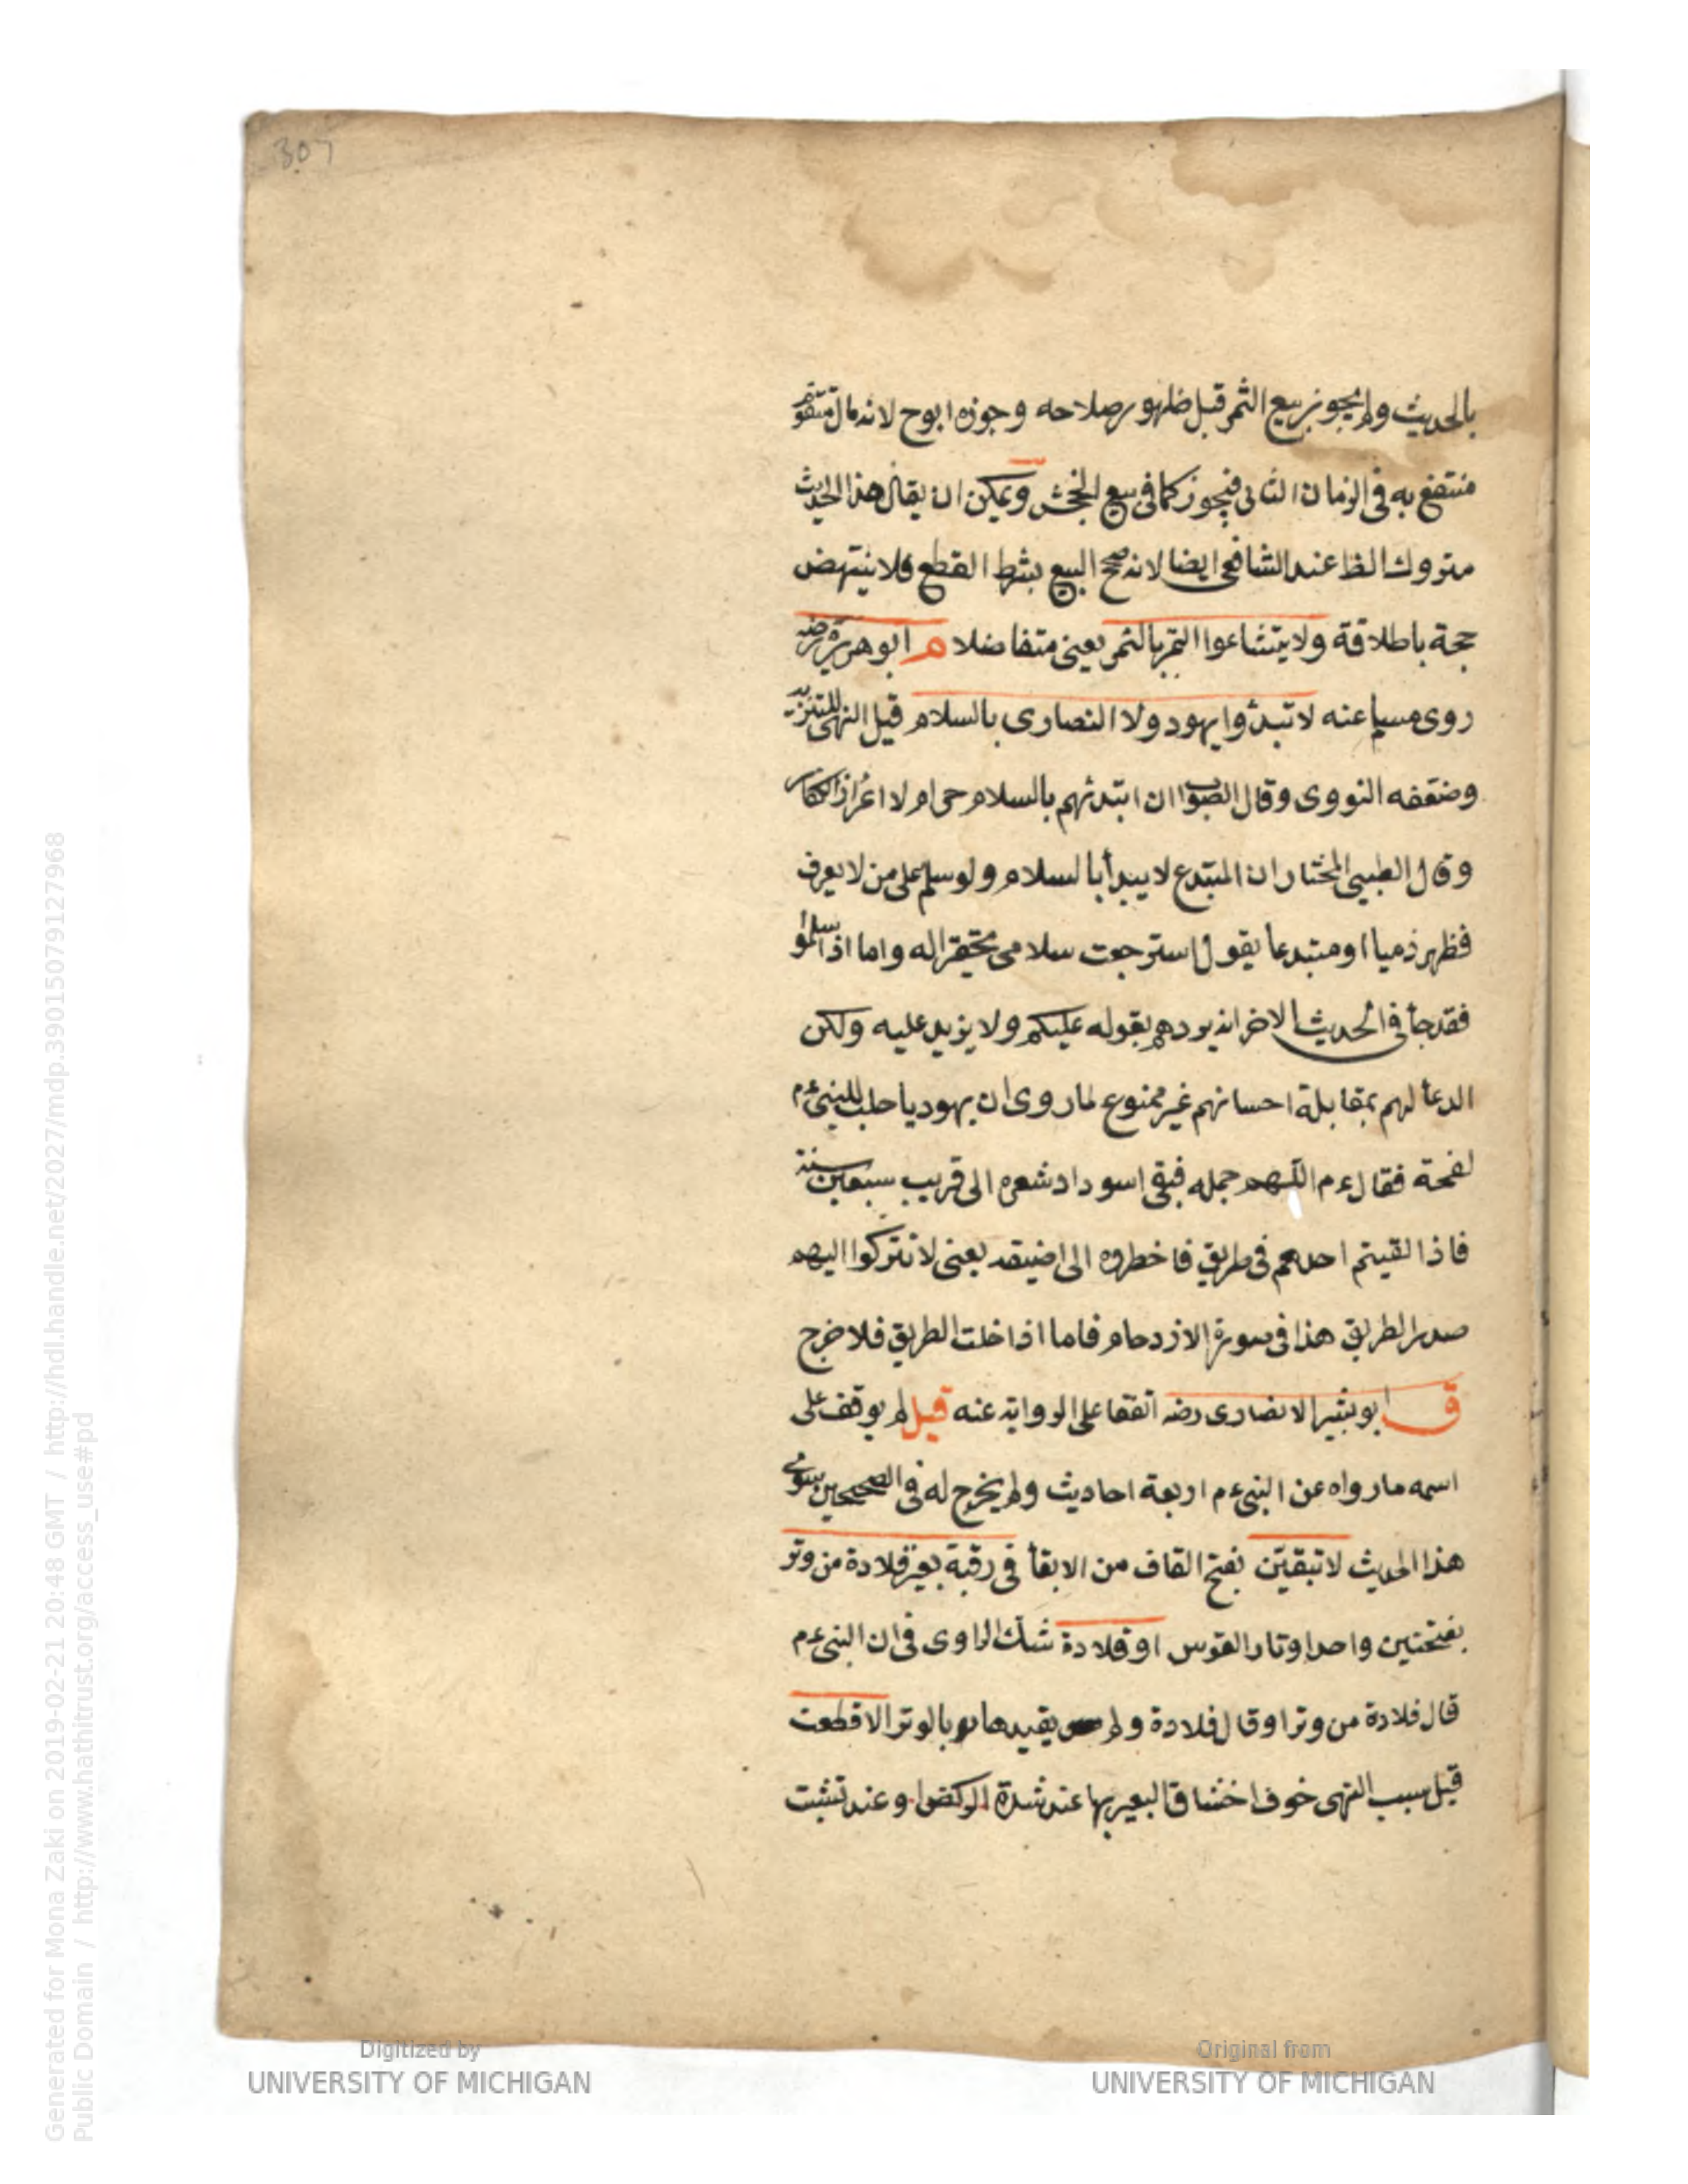 307
بالحديث ولم يجوز بيع الثمر قبل ظهور صلاحه وجوزه ابوح لانه مال متقوم
منتفع به في الزمان الثاني فيجوز كما في بيع الجحش ويمكن ان يقال هذا الحديث
متروك الظا عند الشافعي ايضا لانه صح البيع بشرط القطع فلا ينتهض
حجة باطلاقة ولا يتشاعوا التمر بالتمر يعني متفاضلا م ابو هريرة رضه
روى مسلم عنه لا تبدؤا يهود ولا النصارى بالسلام قيل النهي للتنزيه
وضعفه النووى وقال الصواب ان ابتدئهم بالسلام حرام لا اعزاز الكفار
وقال الطيبى المختار ان المبتدع لا يبدأ بالسلام ولو سلم على من لا يعرف
فظهر ذميا او مبتدعا يقول استرجعت سلامى تحقيرا له واما اذا سلموا
فقد جأ في الحديث الاخر انه يردهم بقوله عليكم ولا يزيد عليه ولكن
الدعأ لهم بمقابلة احسانهم غير ممنوع لما روى ان يهوديا حلب للنبي عم
لقحة فقال عم اللهم جمله فبقى اسوداد شعره الى قريب سبعين سنة
فاذا لقيتم احدهم في طريق فاخطروه الى اضيقه يعنى لا تتركوا اليهم
صدر الطريق هذا في سورة الازدحام فاما اذا خلت الطريق فلا خرج
ق ابو بشير الانصارى رضه اتفقا على الرواية عنه قيل لم يوقف على
اسمه ما رواه عن النبى عم اربعة احاديث ولم يخرج له في الصحيحين سوى
هذا الحديث لا تبقين بفتح القاف من الابقأ في رقبة بعير قلادة من وتر
بفتحتين واحد اوتار القوس او قلادة شك الراوى في ان النبى عم
قال قلادة من وتر او قال قلادة ولم يقيدها بالوتر الا قطعت
قيل سبب النهى خوف اختناق البعير بها عند شدة الركض وعند تشبث
Digitized by
UNIVERSITY OF MICHIGAN
Original from
UNIVERSITY OF MICHIGAN
Generated for Mona Zaki on 2019-02-21 20:48 GMT / http://hdl.handle.net/2027/mdp.39015079127968
Public Domain / http://www.hathitrust.org/access_use#pd